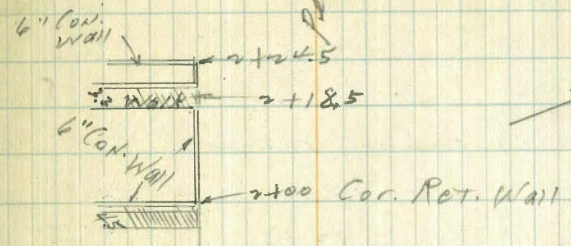 6" Con.
Wall
2+24.5
4.5 Walk 2+18.5
6" Con. Wall
2+00 Cor. Ret. Wall
4.5